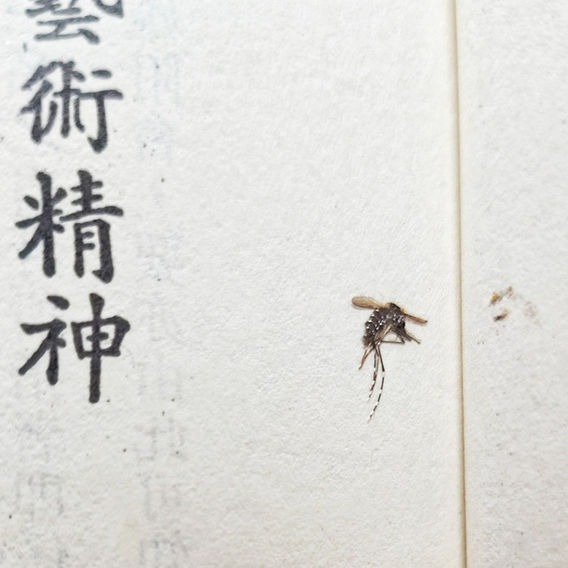 藝術精神